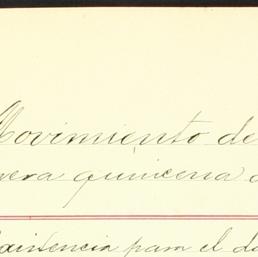 Movimiento de
mera quincena d
Existencia para el d